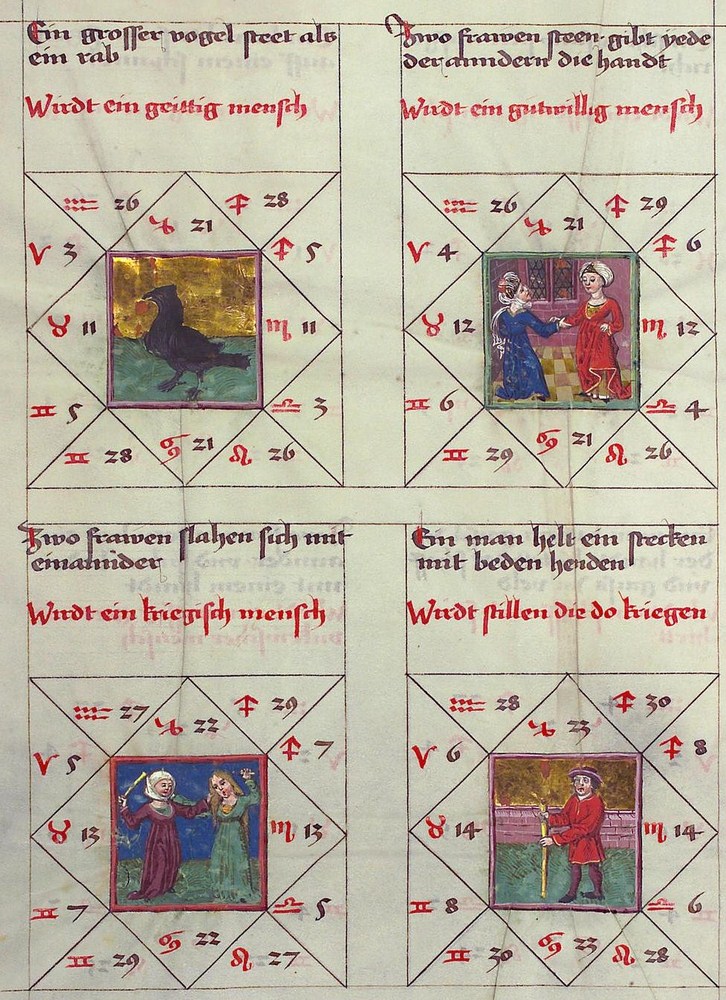 Ein grosser vogel steet als
ein rab
Wirdt ein geittig mensch
♒ 26 ♑ 21 ♐ 28
♈ 3 ♐ 5
♉ 11 ♏ 11
♊ 5 ♎ 3
♊ 28 ♋ 21 ♌ 26
Zwo frawen steen gibt yede
der anndern die handt
Wirdt ein gutwillig mensch
♒ 26 ♑ 21 ♐ 29
♈ 4 ♐ 6
♉ 12 ♏ 12
♊ 6 ♎ 4
♊ 29 ♋ 21 ♌ 26
Zwo frawen slahen sich mit
einannder
Wirdt ein kriegisch mensch
♒ 27 ♑ 22 ♐ 29
♈ 5 ♐ 7
♉ 13 ♏ 13
♊ 7 ♎ 5
♊ 29 ♋ 22 ♌ 27
Ein man helt ein stecken
mit beden henden
Wirdt stillen die do kriegen
♒ 28 ♑ 23 ♐ 30
♈ 6 ♐ 8
♉ 14 ♏ 14
♊ 8 ♎ 6
♊ 30 ♋ 23 ♌ 28